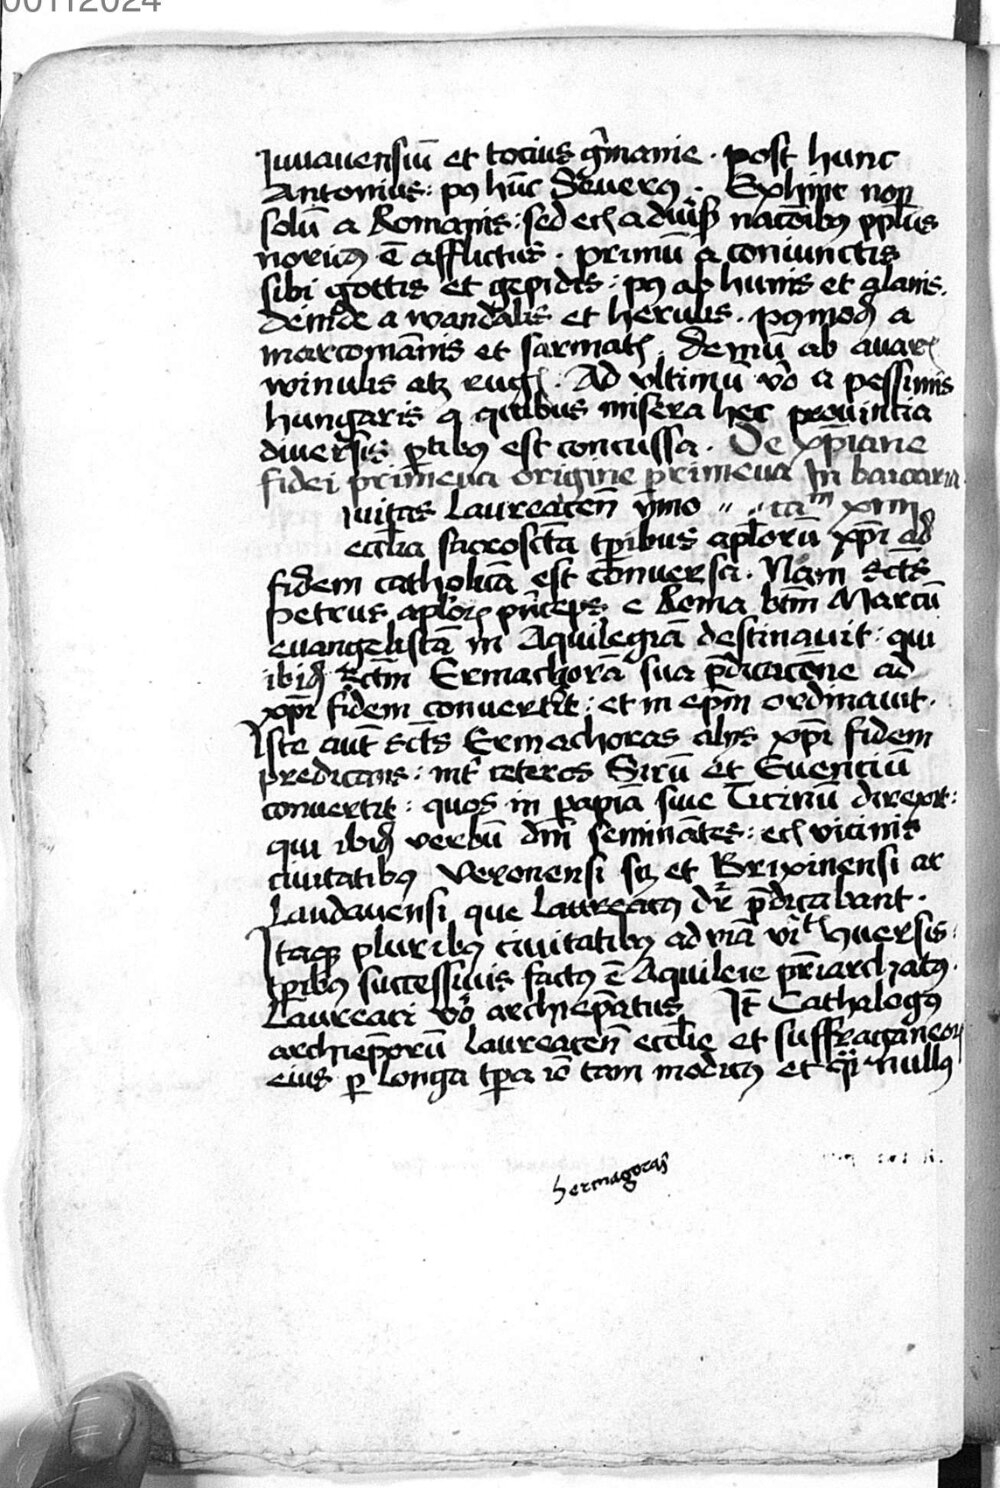 00112024
Iuuauensiū et tocius ḡmanie . post hunc
Antonius : pꝰ hūc Seuerꝰ . Exhinc non
solū a Romanis : sed ecꝫ a diuꝭß nacōibꝰ pplūs
noricꝰ ē afflictus . primū a coniunctis
sibi gottis et gepidis : pꝰ ab hunis et alanis .
deinde a wandalis et herulis . pꝰmodꝫ a
marcomānis et sarmatꝫ . demū ab auarꝫ
winulis atqꝫ rugꝫ . Ad vltimū vo a pessimis
hungaris a quibus misera hec prouincia
diuersis ꝑtibꝰ est concussa . De xp̄iane
fidei primeua origine primeua In bawaria
iuitas Laureaceñ ymo
ecclīa sacroscta tꝑibus aplorū xp̄i ad
fidem catholicā est conuersa . Nam sctūs
Petrus aplorꝫ princeps e Roma btm̄ Marcū
euangelistā in Aquilegiā destinauit : qui
ibidꝫ sctm̄ Ermachorā sua p̄dicacōne ad
xp̄i fidem conuertit : et in ep̄m ordinauit .
Iste aut̄ sctūs Ermachoras alijs xp̄i fidem
predicans : int̄ ceteros Sirū et Euenciū
conuertit : quos in papiā siue Ticinū direxit :
qui ibidꝫ verbū dn̄i seminātes : ecꝫ vicinis
ciuitatibꝰ Veronensi scꝫ et Brixinensi ac
Laudauensi que Laureacꝰ dr̄ p̄dicabant .
Itaqꝫ pluribꝰ ciuitatibꝰ ad viā vītꝭ ꝯuersis :
tꝑibꝰ successiuis factꝰ ē Aquileie pr̄iarchatꝰ .
Laureaci vo archiep̄atus It̄ Cathalogꝰ
archiep̄orū Laureaceñ ecclīe et suffraganeorꝫ
eius ꝑ longa tꝑa iō tam modicꝰ et qͣi nullꝰ
hermagoras